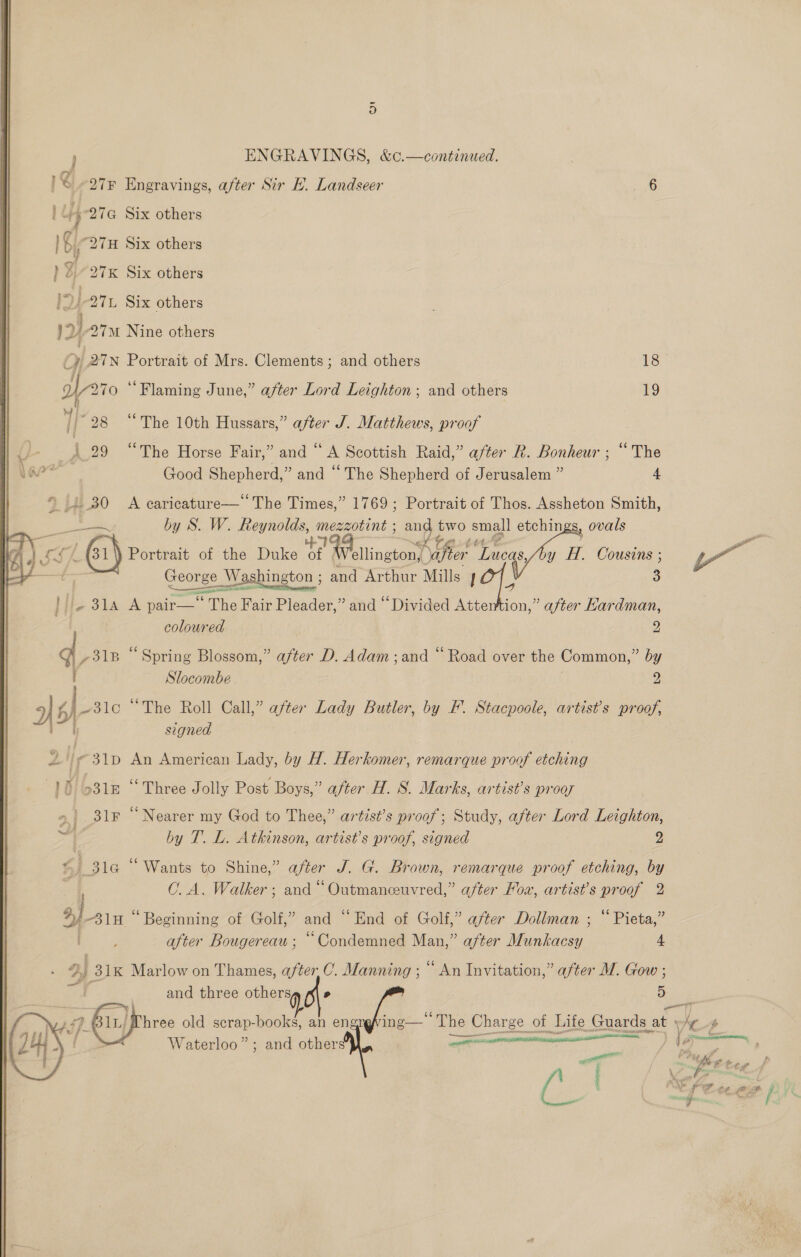 5
ENGRAVINGS, &c.—continued.
27F Engravings, after Sir E. Landseer 6
27G Six others
27H Six others
27K Six others
27L Six others
27M Nine others
27N Portrait of Mrs. Clements; and others 18
27O “Flaming June,” after Lord Leighton; and others 19
28 “The 10th Hussars,” after J. Matthews, proof
29 “The Horse Fair,” and “A Scottish Raid,” after R. Bonheur; “The
Good Shepherd,” and “The Shepherd of Jerusalem” 4
30 A caricature—“The Times,” 1769; Portrait of Thos. Assheton Smith,
by S. W. Reynolds, mezzotint; and two small etchings, ovals
31 Portrait of the Duke of Wellington, after Lucas, by H. Cousins;
George Washington; and Arthur Mills 3
31A A pair—“The Fair Pleader,” and “Divided Attention,” after Hardman,
coloured 2
31B “Spring Blossom,” after D. Adam; and “Road over the Common,” by
Slocombe 2
31C “The Roll Call,” after Lady Butler, by F. Stacpoole, artist's proof,
signed
31D An American Lady, by H. Herkomer, remarque proof etching
31E “Three Jolly Post Boys,” after H. S. Marks, artist's proof
31F “Nearer my God to Thee,” artist's proof; Study, after Lord Leighton,
by T. L. Atkinson, artist's proof, signed 2
31G “Wants to Shine,” after J. G. Brown, remarque proof etching, by
C. A. Walker; and “Outmanœuvred,” after Fox, artist's proof 2
31H “Beginning of Golf,” and “End of Golf,” after Dollman; “Pieta,”
after Bougereau; “Condemned Man,” after Munkacsy 4
31K Marlow on Thames, after C. Manning; “An Invitation,” after M. Gow;
and three others 5
31L Three old scrap-books, an engraving—“The Charge of Life Guards at
Waterloo”; and others